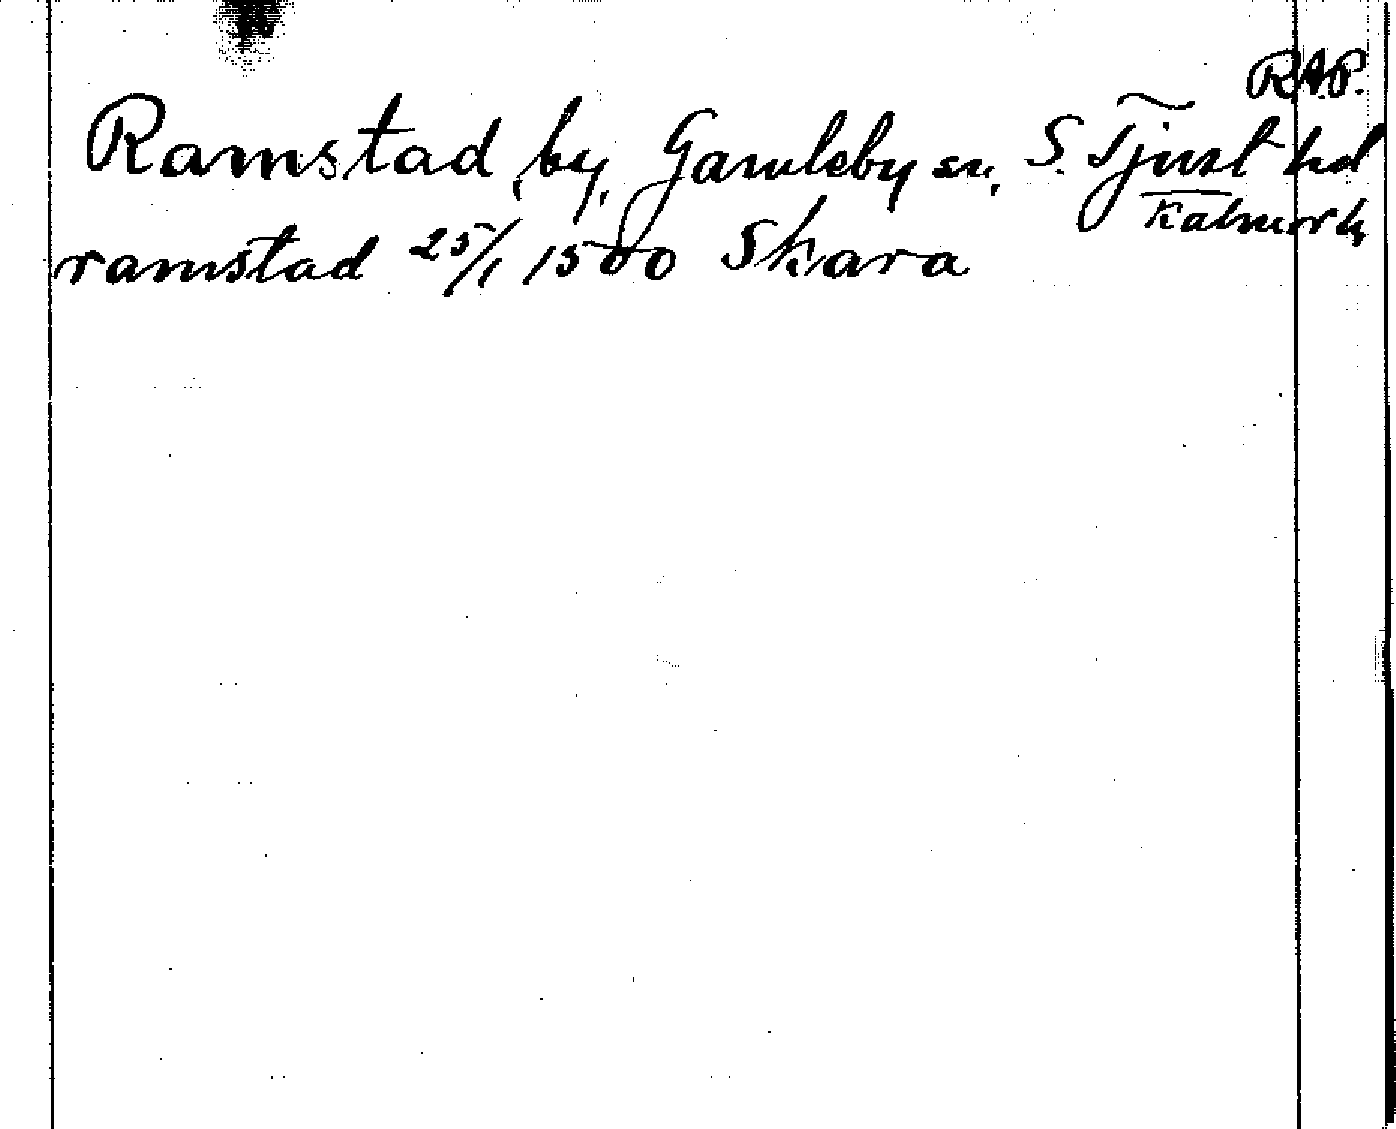 RAP.
Ramstad, by, Gamleby sn, S. Tjust hd
Kalmar l.
ramstad 25/1 1500 Skara